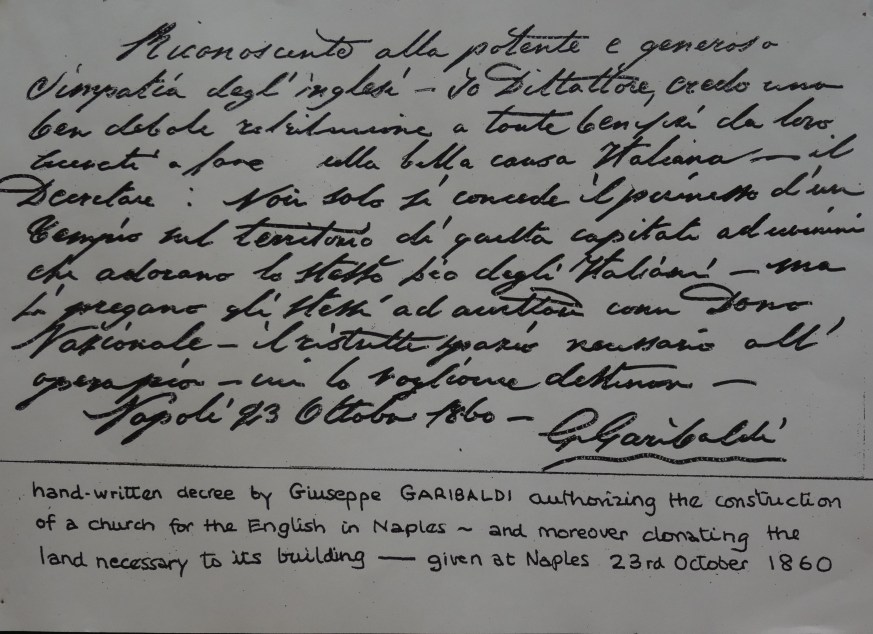 Riconoscente alla potente e generosa
simpatia degl' inglesi – Io Dittattore, credo una
ben debole retribuzione a tante benefizi da loro
a fare alla bella causa Italiana – il
Decretare : Non solo si concede il permesso d'un
tempio sul territorio di questa capitale ad uomini
che adorano lo stesso Dio degli Italiani – ma
si pregano gli stessi ad accettare come Dono
Nazionale – il ristretto spazio necessario all'
opera pia – cui lo vogliono destinare –
Napoli 23 Ottobre 1860 –
G. Garibaldi
hand-written decree by Giuseppe GARIBALDI authorizing the construction
of a church for the English in Naples ~ and moreover donating the
land necessary to its building — given at Naples 23rd October 1860